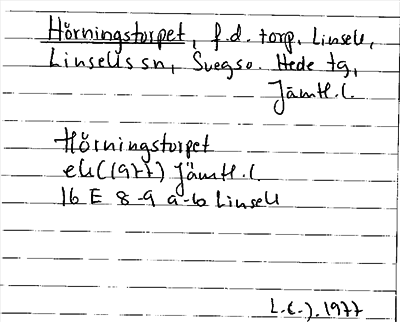 Hörningstorpet, f.d. torp, Linsell,
Linsells sn, Svegs o. Hede tg,
Jämtl. l.
Hörningstorpet
ek (1977) Jämtl. l.
16 E 8-9 a-b Linsell
L.E.J. 1977